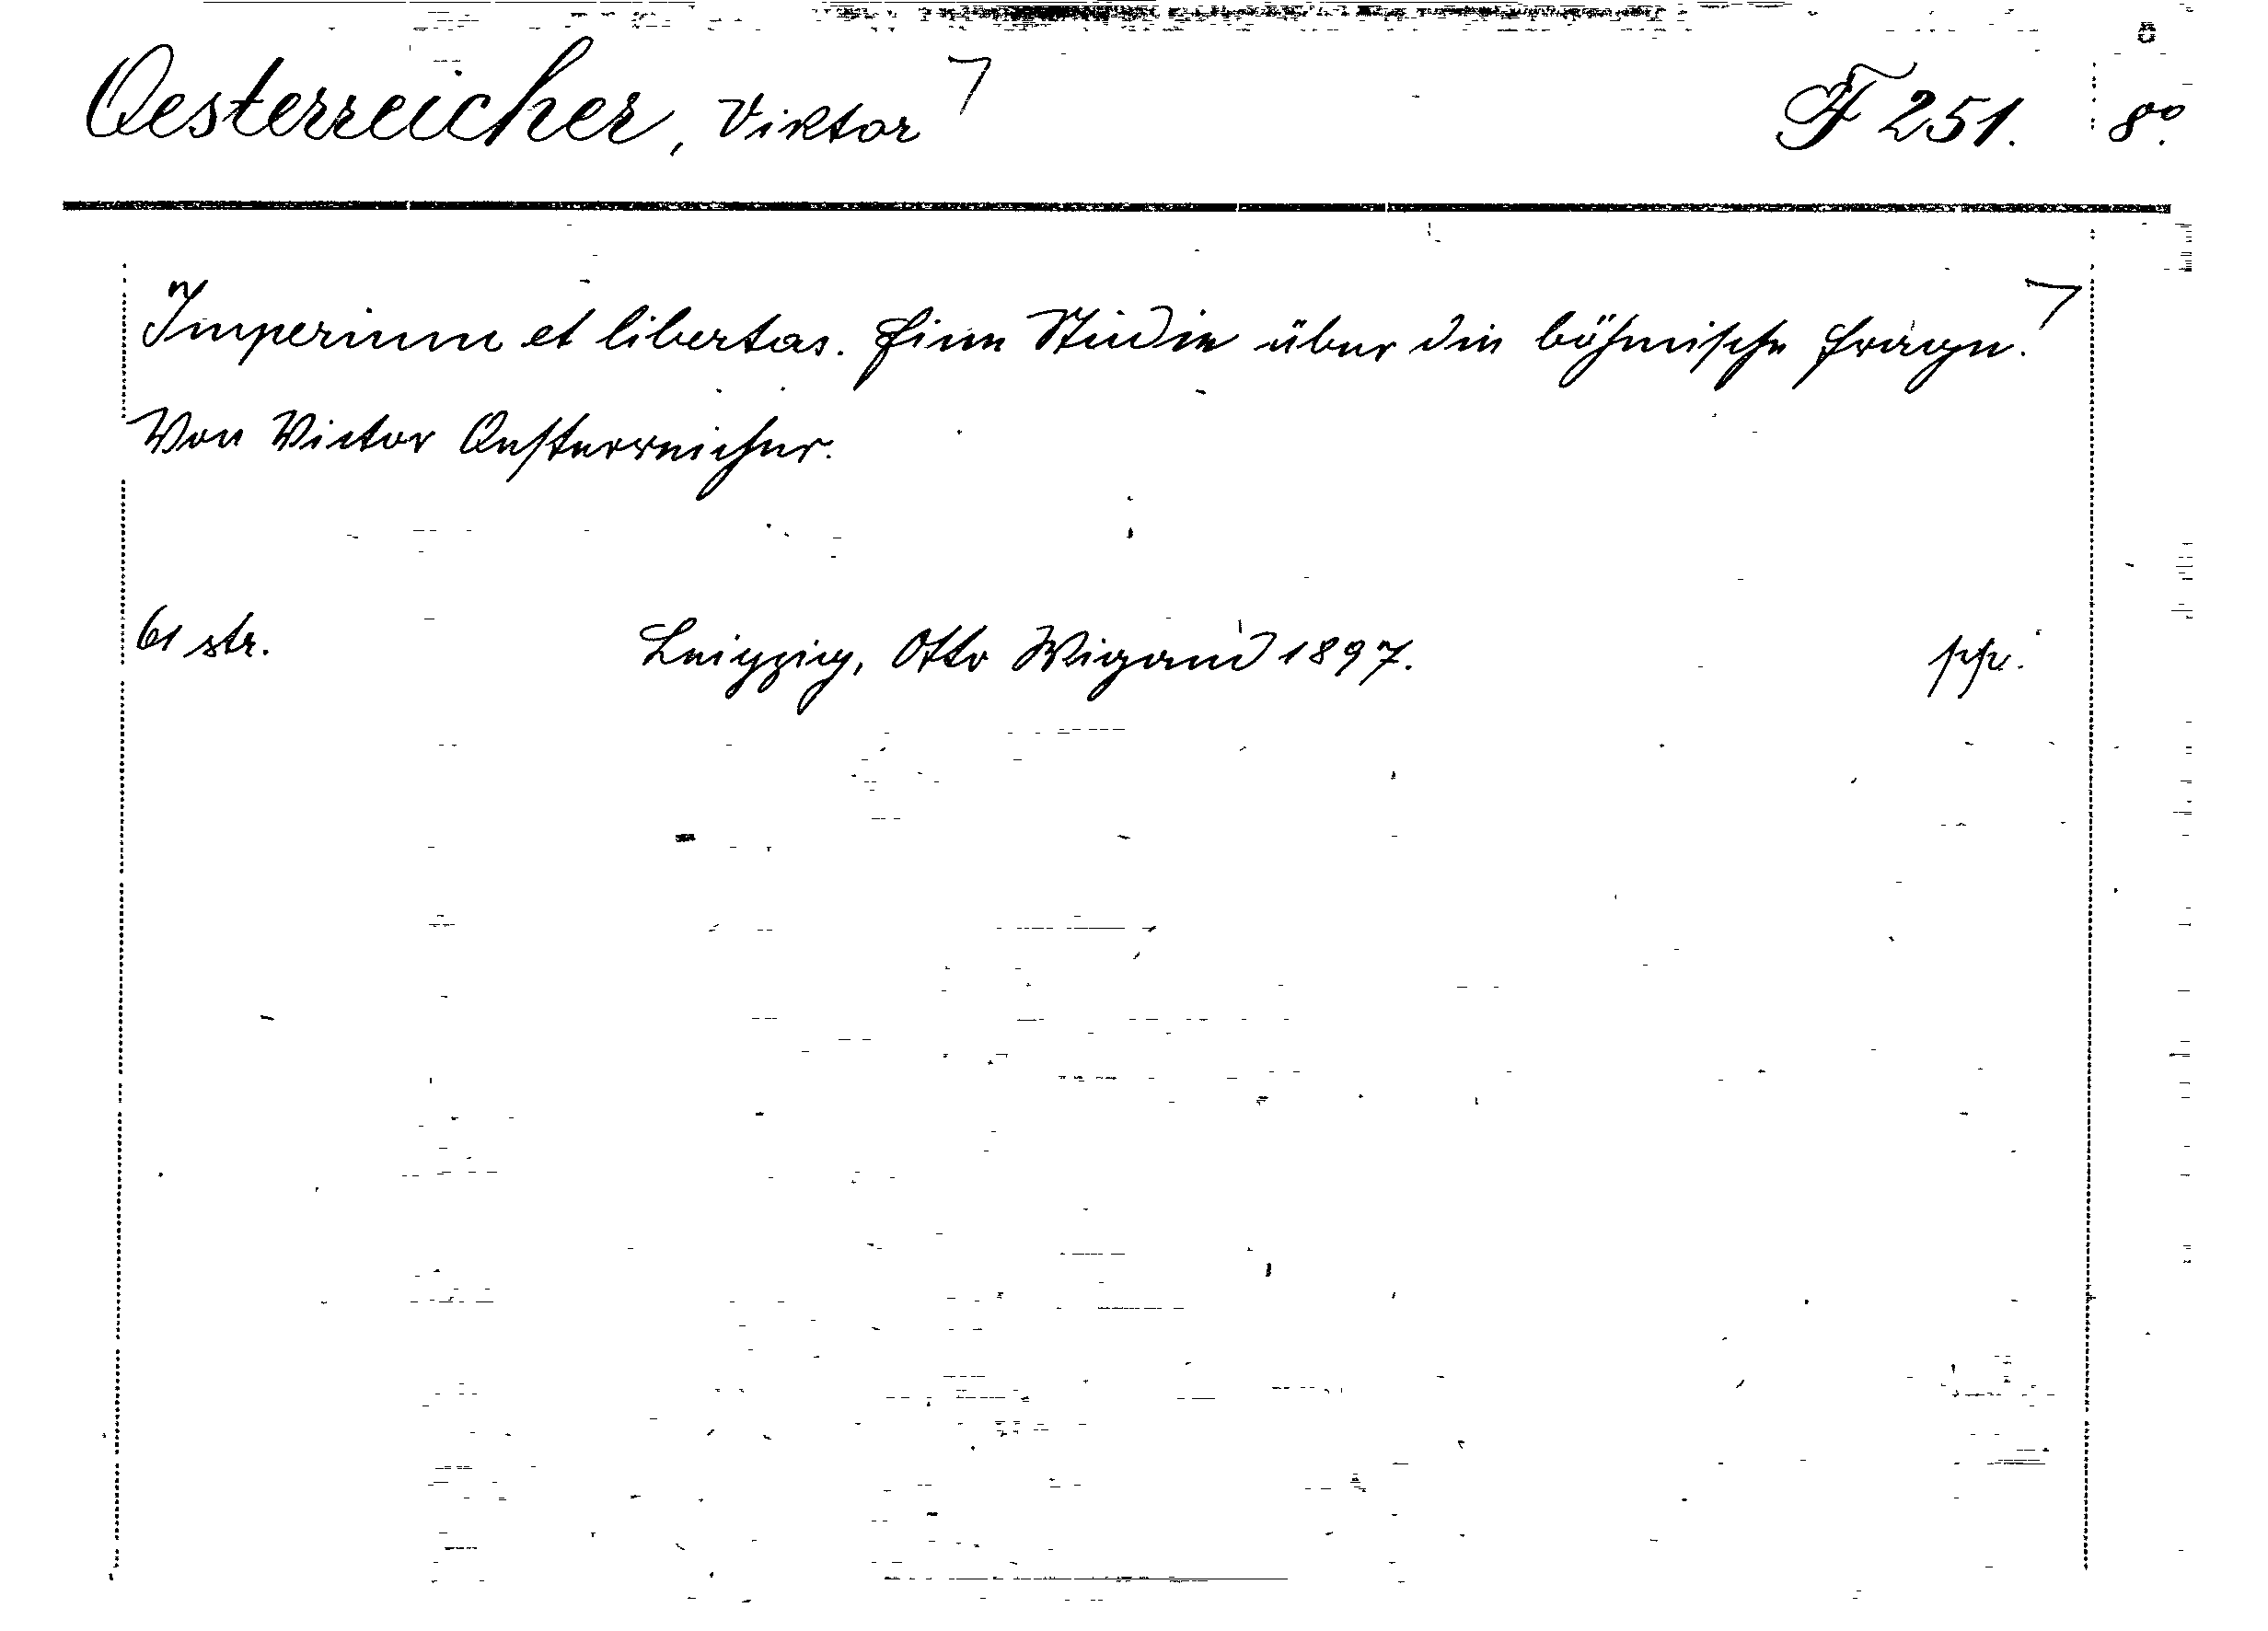 Oesterreicher, Viktor F 251. 8º.
Imperium et libertas. Eine Studie über die böhmische Frage.
Von Victor Oesterreicher.
61 str. Leipzig, Otto Wigand 1897.